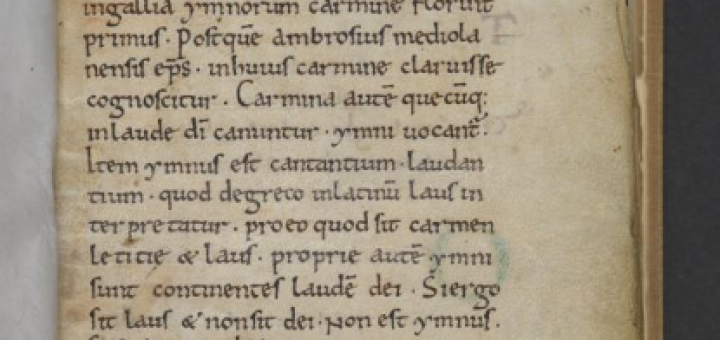 ingallia ymnorum carmine floruit
primus. Postquē ambrosius mediola
nensis ep̄s. inhuius carmine claruisse
cognoscitur. Carmina autē quecūq;
inlaude dī canuntur. ymni uocant̄.
Item ymnus est cantantium. laudan
tium. quod degreco inlatinū laus in
terpretatur. proeo quod sit carmen
leticie & laus. proprie autē ymni
sunt continentes laudē dei. Siergo
sit laus & nonsit dei. non est ymnus.